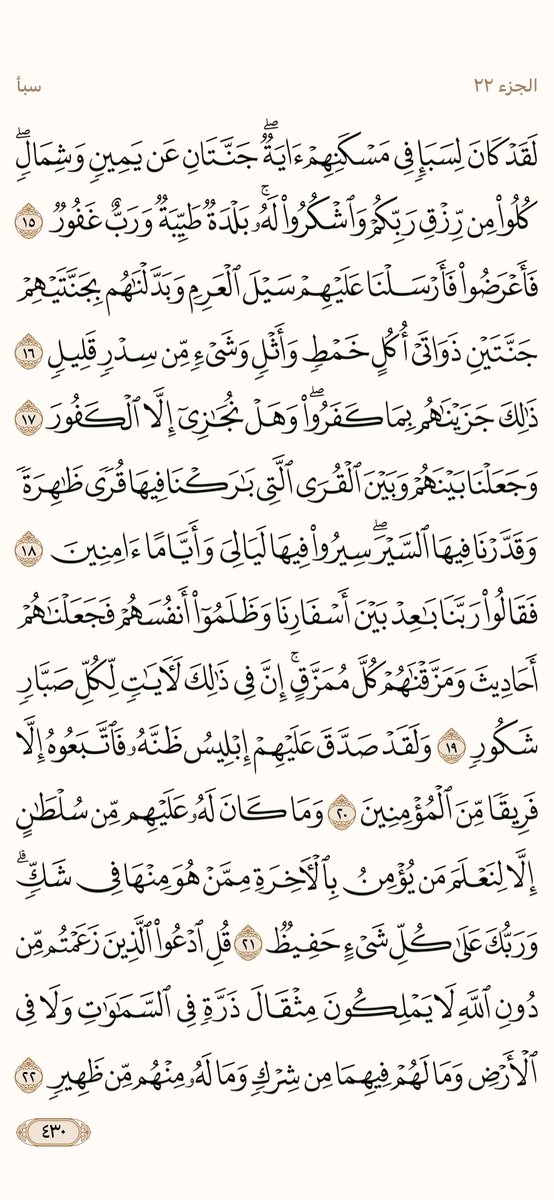 الجزء ٢٢
سبأ
لَقَدْ كَانَ لِسَبَإٍ فِي مَسْكَنِهِمْ ءَايَةٌۖ جَنَّتَانِ عَن يَمِينٍ وَشِمَالٍۖ
كُلُوا۟ مِن رِّزْقِ رَبِّكُمْ وَٱشْكُرُوا۟ لَهُۥۚ بَلْدَةٌ طَيِّبَةٌ وَرَبٌّ غَفُورٌ ١٥
فَأَعْرَضُوا۟ فَأَرْسَلْنَا عَلَيْهِمْ سَيْلَ ٱلْعَرِمِ وَبَدَّلْنَٰهُم بِجَنَّتَيْهِمْ
جَنَّتَيْنِ ذَوَاتَىْ أُكُلٍ خَمْطٍ وَأَثْلٍ وَشَىْءٍ مِّن سِدْرٍ قَلِيلٍ ١٦
ذَٰلِكَ جَزَيْنَٰهُم بِمَا كَفَرُوا۟ۖ وَهَلْ نُجَٰزِىٓ إِلَّا ٱلْكَفُورَ ١٧
وَجَعَلْنَا بَيْنَهُمْ وَبَيْنَ ٱلْقُرَى ٱلَّتِى بَٰرَكْنَا فِيهَا قُرًى ظَٰهِرَةً
وَقَدَّرْنَا فِيهَا ٱلسَّيْرَۖ سِيرُوا۟ فِيهَا لَيَالِىَ وَأَيَّامًا ءَامِنِينَ ١٨
فَقَالُوا۟ رَبَّنَا بَٰعِدْ بَيْنَ أَسْفَارِنَا وَظَلَمُوٓا۟ أَنفُسَهُمْ فَجَعَلْنَٰهُمْ
أَحَادِيثَ وَمَزَّقْنَٰهُمْ كُلَّ مُمَزَّقٍۚ إِنَّ فِى ذَٰلِكَ لَءَايَٰتٍ لِّكُلِّ صَبَّارٍ
شَكُورٍ ١٩ وَلَقَدْ صَدَّقَ عَلَيْهِمْ إِبْلِيسُ ظَنَّهُۥ فَٱتَّبَعُوهُ إِلَّا
فَرِيقًا مِّنَ ٱلْمُؤْمِنِينَ ٢٠ وَمَا كَانَ لَهُۥ عَلَيْهِم مِّن سُلْطَٰنٍ
إِلَّا لِنَعْلَمَ مَن يُؤْمِنُ بِٱلْءَاخِرَةِ مِمَّنْ هُوَ مِنْهَا فِى شَكٍّۗ
وَرَبُّكَ عَلَىٰ كُلِّ شَىْءٍ حَفِيظٌ ٢١ قُلِ ٱدْعُوا۟ ٱلَّذِينَ زَعَمْتُم مِّن
دُونِ ٱللَّهِ لَا يَمْلِكُونَ مِثْقَالَ ذَرَّةٍ فِى ٱلسَّمَٰوَٰتِ وَلَا فِى
ٱلْأَرْضِ وَمَا لَهُمْ فِيهِمَا مِن شِرْكٍ وَمَا لَهُۥ مِنْهُم مِّن ظَهِيرٍ ٢٢
٤٣٠